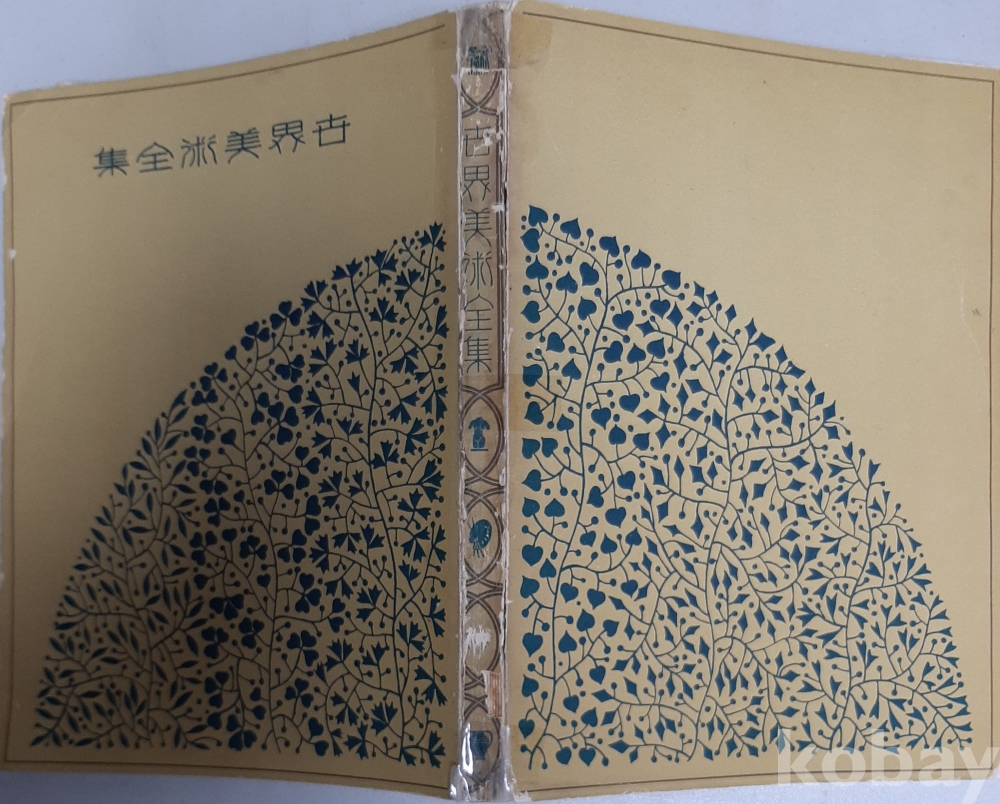 世界美術全集
世界美術全集
kobay